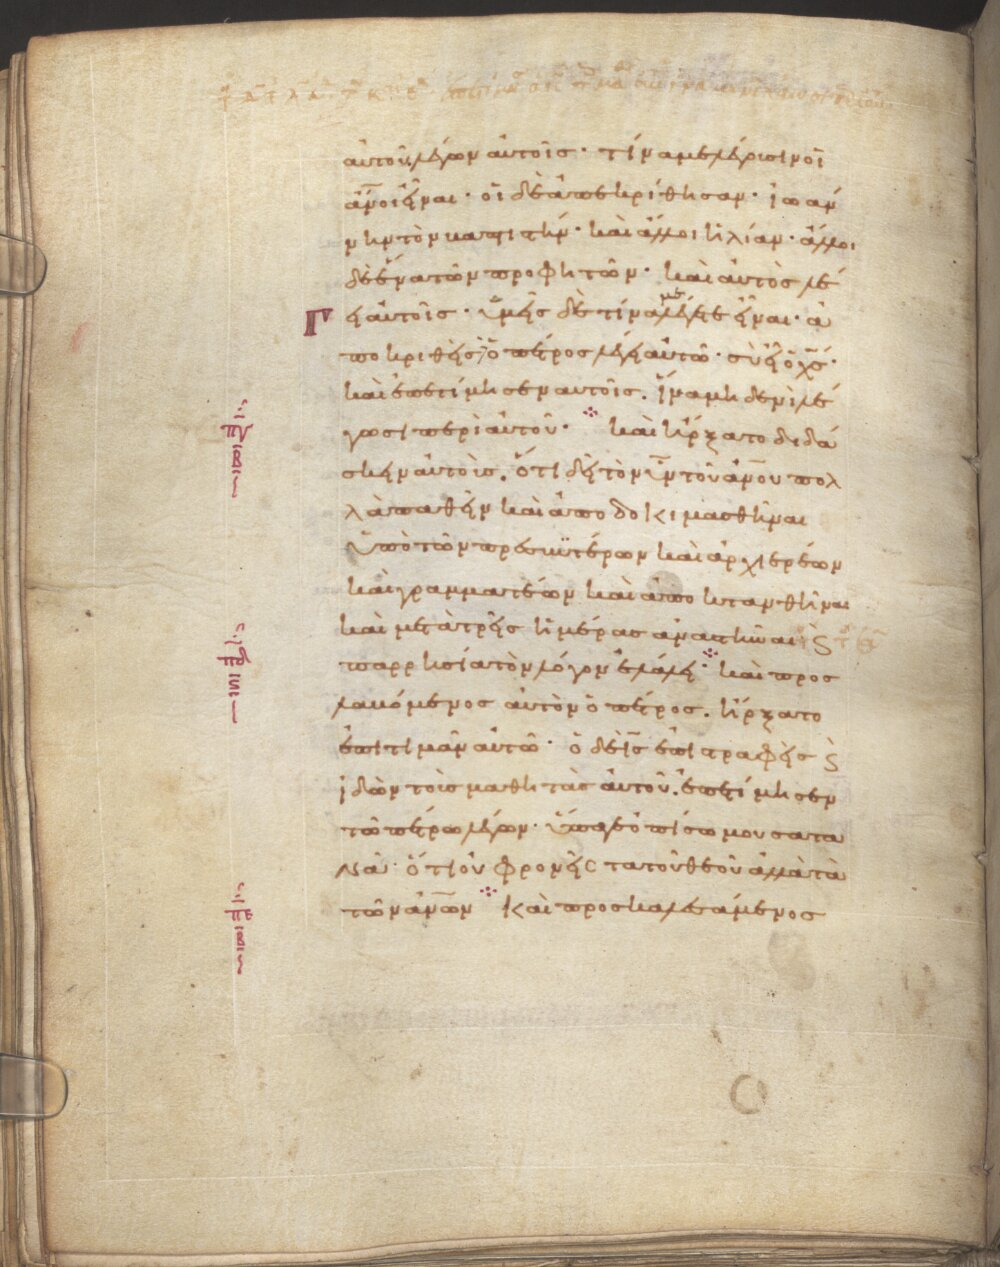 αὐτοῦ λέγων αὐτοῖς · τίνα με λέγουσιν οἱ
ἄν̅οι εἶναι · οἱ δὲ ἀπεκρίθησαν · ἰωάν
νην τὸν βαπτιστήν · καὶ ἄλλοι ἠλίαν · ἄλλοι
δὲ ἕνα τῶν προφητῶν · καὶ αὐτὸς λέ
γει αὐτοῖς · ὑμεῖς δὲ τίνα με λέγετε εἶναι · ἀ
ποκριθεὶς ὁ πέτρος λέγει αὐτῷ · σὺ εἶ ὁ χ̅ς̅ ·
καὶ ἐπετίμησεν αὐτοῖς . ἵνα μηδενὶ λέ
γωσι περὶ αὐτοῦ · καὶ ἤρξατο διδά
σκειν αὐτοὺς . ὅτι δεῖ τὸν υ̅ν̅ τοῦ ἀν̅ου πολ
λὰ παθεῖν καὶ ἀποδοκιμασθῆναι
ὑπὸ τῶν πρεσβυτέρων καὶ ἀρχιερέων
καὶ γραμματέων καὶ ἀποκτανθῆναι
καὶ μετὰ τρεῖς ἡμέρας ἀναστῆναι ϗ
παρρησία τὸν λόγον ἐλάλει · καὶ προσ
λαβόμενος αὐτὸν ὁ πέτρος . ἤρξατο
ἐπιτιμᾶν αὐτῷ · ὁ δὲ ι̅ς̅ ἐπιστραφεὶς ϗ
ἰδὼν τοὺς μαθητὰς αὐτοῦ . ἐπετίμησεν
τῷ πέτρω λέγων · ὕπαγε ὀπίσω μου σατα
νᾶ · ὅτι οὐ φρονεῖς τὰ τοῦ θεοῦ ἀλλὰ τὰ
τῶν ἀν̅ων καὶ προσκαλεσάμενος